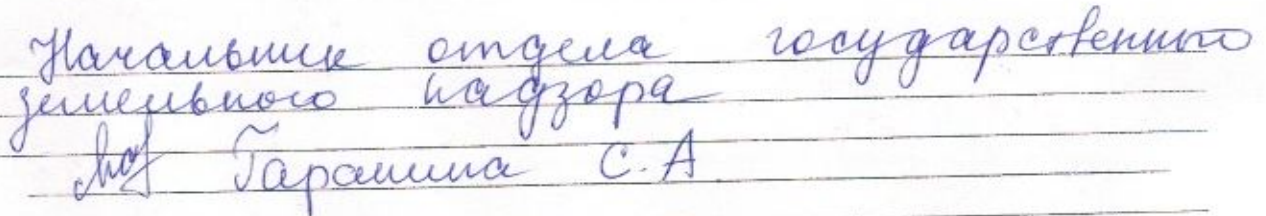 Начальник отдела государственного
земельного надзора
Гаранина С.А